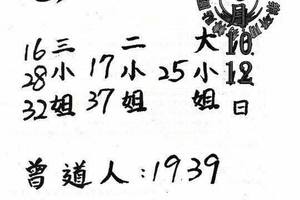 月
12
日
大小姐
25
二小姐
17
37
三小姐
16
28
32
曾道人:1939